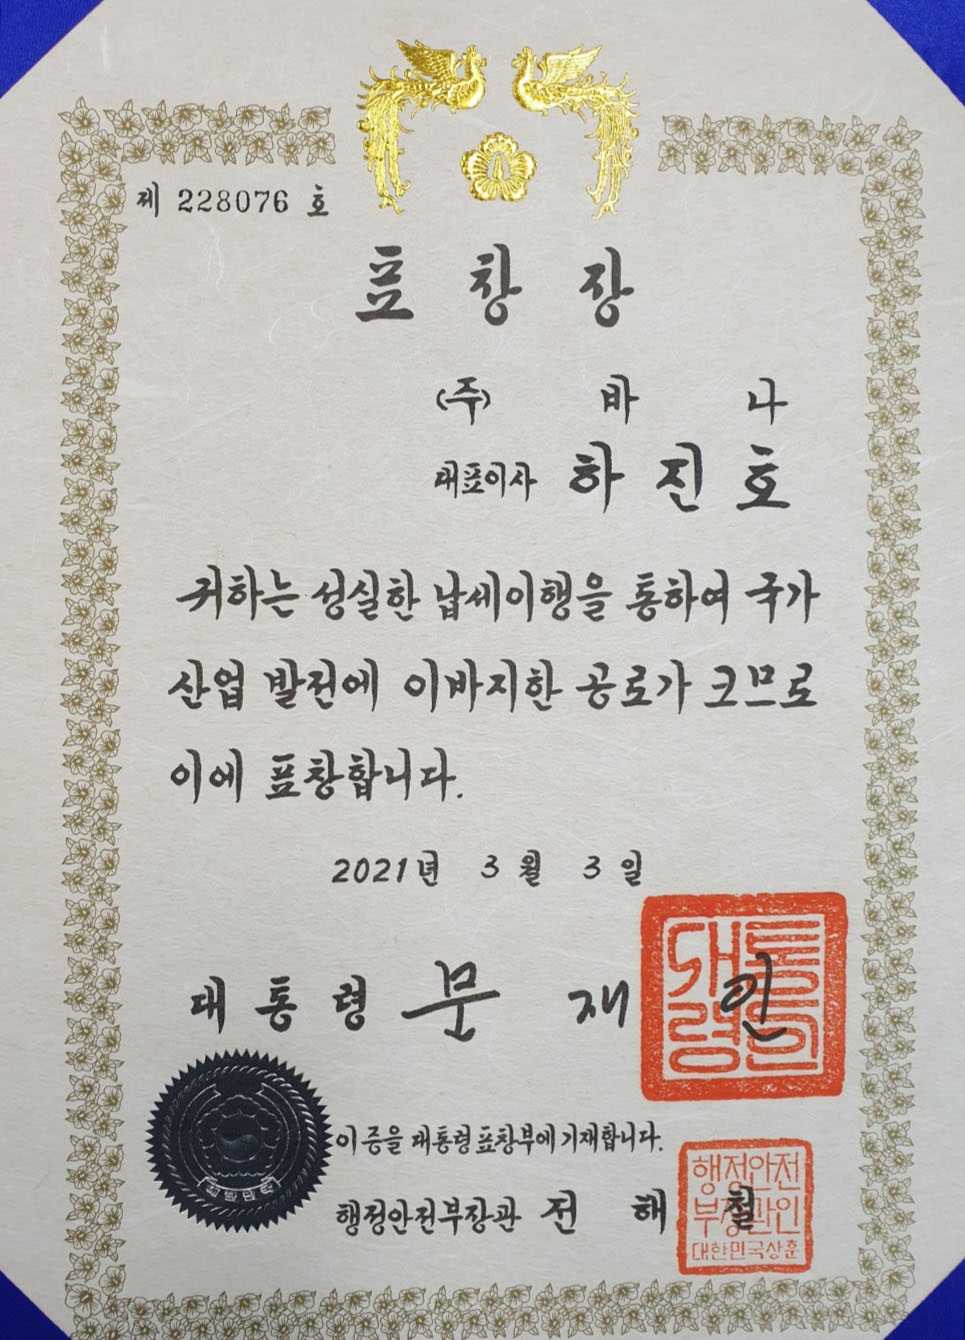 제 228076 호
표창장
(주) 바나
대표이사 하진호
귀하는 성실한 납세이행을 통하여 국가
산업 발전에 이바지한 공로가 크므로
이에 표창합니다.
2021년 3월 3일
대통령 문재인
대통령인
이 증을 대통령표창부에 기재합니다.
행정안전부장관 전해철
행정안전
부장관인
대한민국상훈
대한민국